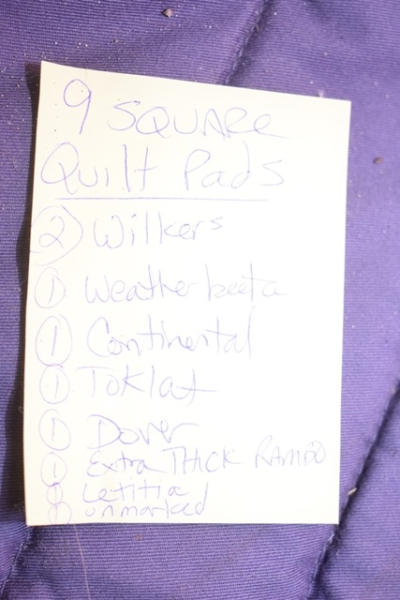 9 SQUARE
Quilt Pads
② Wilkers
① Weatherbeeta
① Continental
① Toklat
① Dover
① Extra THICK RAMBO
① Letitia
① unmarked